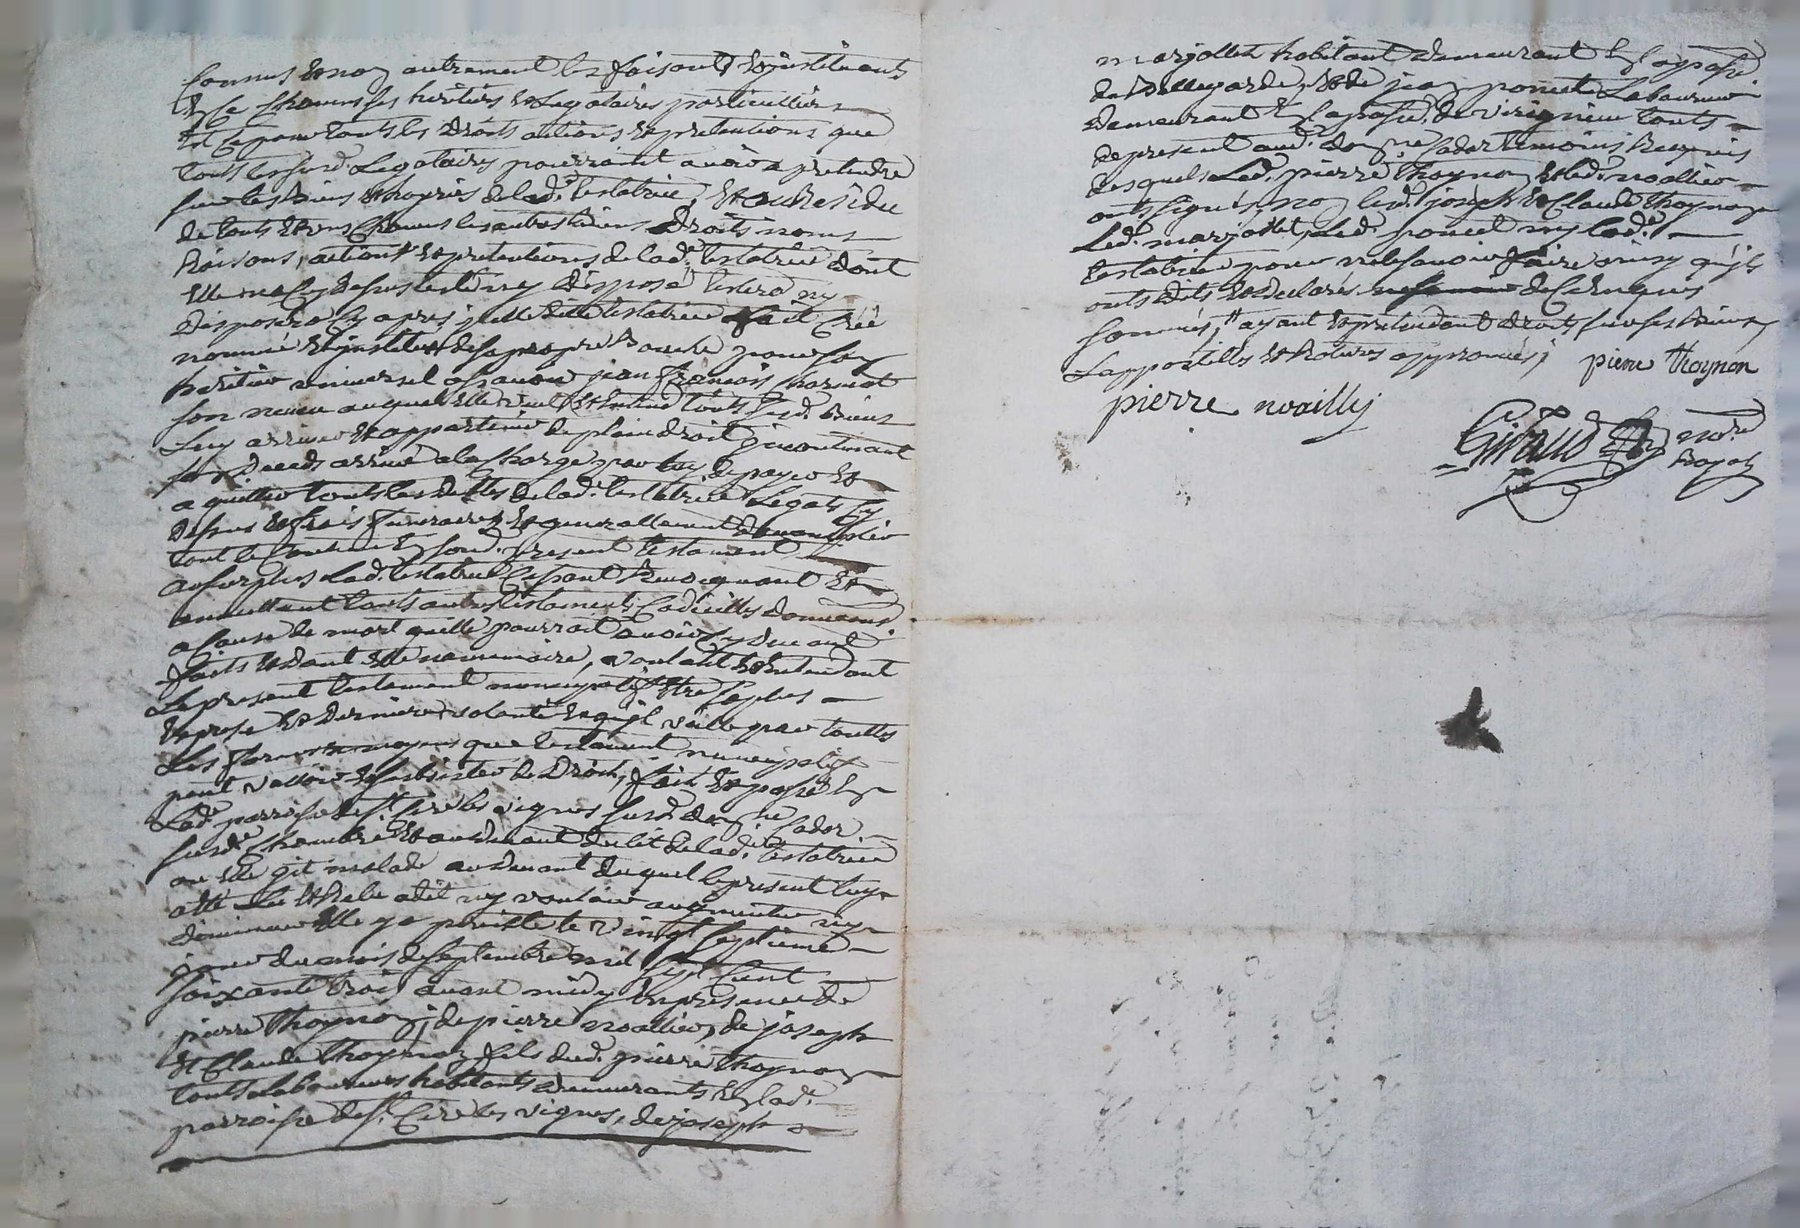 Connus et non autrement les faisants et jnstituants
En ce chacuns ses heritiers et Legataires particuilliers
Et ce pour touts les droits actions et pretentions que
touts les susd. Legataires pourroient avoir a pretendre
sur les biens et hoyries de lad.e testatrice, Et au Residu
de touts et uns chacuns les autres biens droits noms
Raisons, actions et pretentions de lad.e testatrice dont
Elle na cy dessus testé ny disposé testera ny
disposera cy apres jcelle ditte testatrice fait créé
nommé et jnstitue de sa propre Bouche pour son
heritier universel a sçavoir jean françois
son neveu auquel Elle veut et Entend touts sesd. biens
Luy arriver et appartenir de plein droit jncontinant
son deceds arrivé a la charge par luy de payer et
aquitter touts les dettes de lad.e testatrice Legats cy
dessus et frais funeraires et generallement
tout le contenu En son present testament
au surplus Lad.e testatrice Cassant Revoquant et
annullant touts autres testaments Codicilles donnations
a Cause de mort quelle pourroit avoir cy devant
faits et dont Elle na memoire, voulant et Entendant
Le present testament noncupatif Etre sa plus
Expresse et derniere volonté et qujl vaille par touttes
Les formes et moyens que testament nuncupatif
peut valloir et subsister de droit, fait et passé En
Lad.e parroisse de St. Cire les vignes susd. domne
susd.e chambre et au devant du lit de lad.e testatrice
ou Elle git malade au devant duquel le present luy a
eté Lu et Relu a dit ny vouloir augmenter ny
diminuer Elle y a persisté le vingt septieme
jour du mois de septembre mil sept Cent
soixante trois avant midy En presence de
pierre Thoynon, de pierre noallier, de joseph
et Claude Thoynon fils dud. pierre Thoynon
touts Laboureurs habitants demeurants En lad.e
parroisse de St. Cire les vignes, de joseph
marjollet habitant demeurant En la parsse
de Bellegarde, et de jean poncet Laboureur
demeurant En la parsse de virigneu touts
de present aud. domne temoins Requis
desquels Led. pierre Thoynon et led. noallier
onts signés, non lesd. joseph et Claude Thoynon
Led. marjollet, Led. poncet ny Lad.e
testatrice pour ne le sçavoir faire ainsy qujls
onts dits et declarés de Ce Enquis
sommés, # ayant et pretendant droits sur ses biens
Lappostilles et Ratures approuvés,
pierre thoynon
pierre noailly
Giraud
no.re
Royal